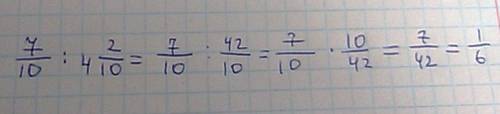 7/10 : 4 2/10 = 7/10 : 42/10 = 7/10 · 10/42 = 7/42 = 1/6